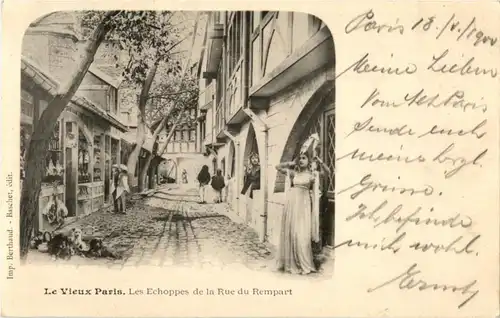 Paris 18/X. 1900
Meine Lieben
Vom Alt Paris
sende euch
meine herzl.
Grüsse
Ich befinde
mich wohl.
Ernst
Le Vieux Paris. Les Echoppes de la Rue du Rempart
Imp. Berthaud. - Bascher, édit.